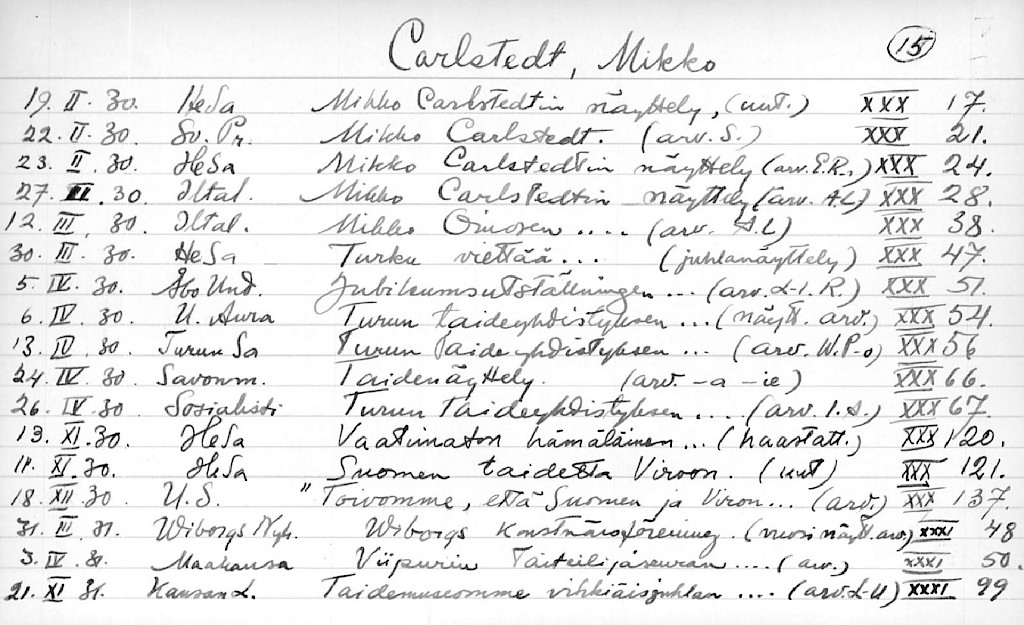 Carlstedt, Mikko 15
19. II. 30. HeSa Mikko Carlstedtin näyttely, (uut.) XXX 17.
22. II. 30. Sv. Pr. Mikko Carlstedt. (arv. S.) XXX 21.
23. II. 30. HeSa Mikko Carlstedtin näyttely (arv. E.R.,) XXX 24.
27. II. 30. Iltal. Mikko Carlstedtin näyttely (arv. A.L) XXX 28.
12. III. 30. Iltal. Mikko Oinosen .... (arv. A.L) XXX 38.
30. III. 30. HeSa Turku viettää ... (juhlanäyttely) XXX 47.
5. IV. 30. Åbo Und. Jubileumsutställningen ... (arv. L-l. R.) XXX 51.
6. IV. 30. U. Aura Turun taideyhdistyksen ... (näytt. arv.) XXX 54.
13. IV. 30. Turun Sa Turun Taideyhdistyksen ... (arv. W.P-o) XXX 56
24. IV. 30. Savonm. Taidenäyttely. (arv. -a -ie) XXX 66.
26. IV. 30 Sosialisti Turun Taideyhdistyksen .... (arv. I.S.) XXX 67.
13. XI. 30. HeSa Vaatimaton hämäläinen ... (haastatt.) XXX 120.
11. XI. 30. HeSa Suomen taidetta Viroon. (uut) XXX 121.
18. XII. 30 U.S. " Toivomme, että Suomen ja Viron ... (arv.) XXX 137.
31. III. 31. Wiborgs Nyh. Wiborgs Konstnärsförening. (vuosinäytt. arv.) XXXI 48
3. IV. 31. Maakansa Viipurin Taiteilijaseuran .... (arv.) XXXI 50.
21. XI 31. Kansan L. Taidemuseomme vihkiäisjuhlan .... (arv. L-U) XXXI 99